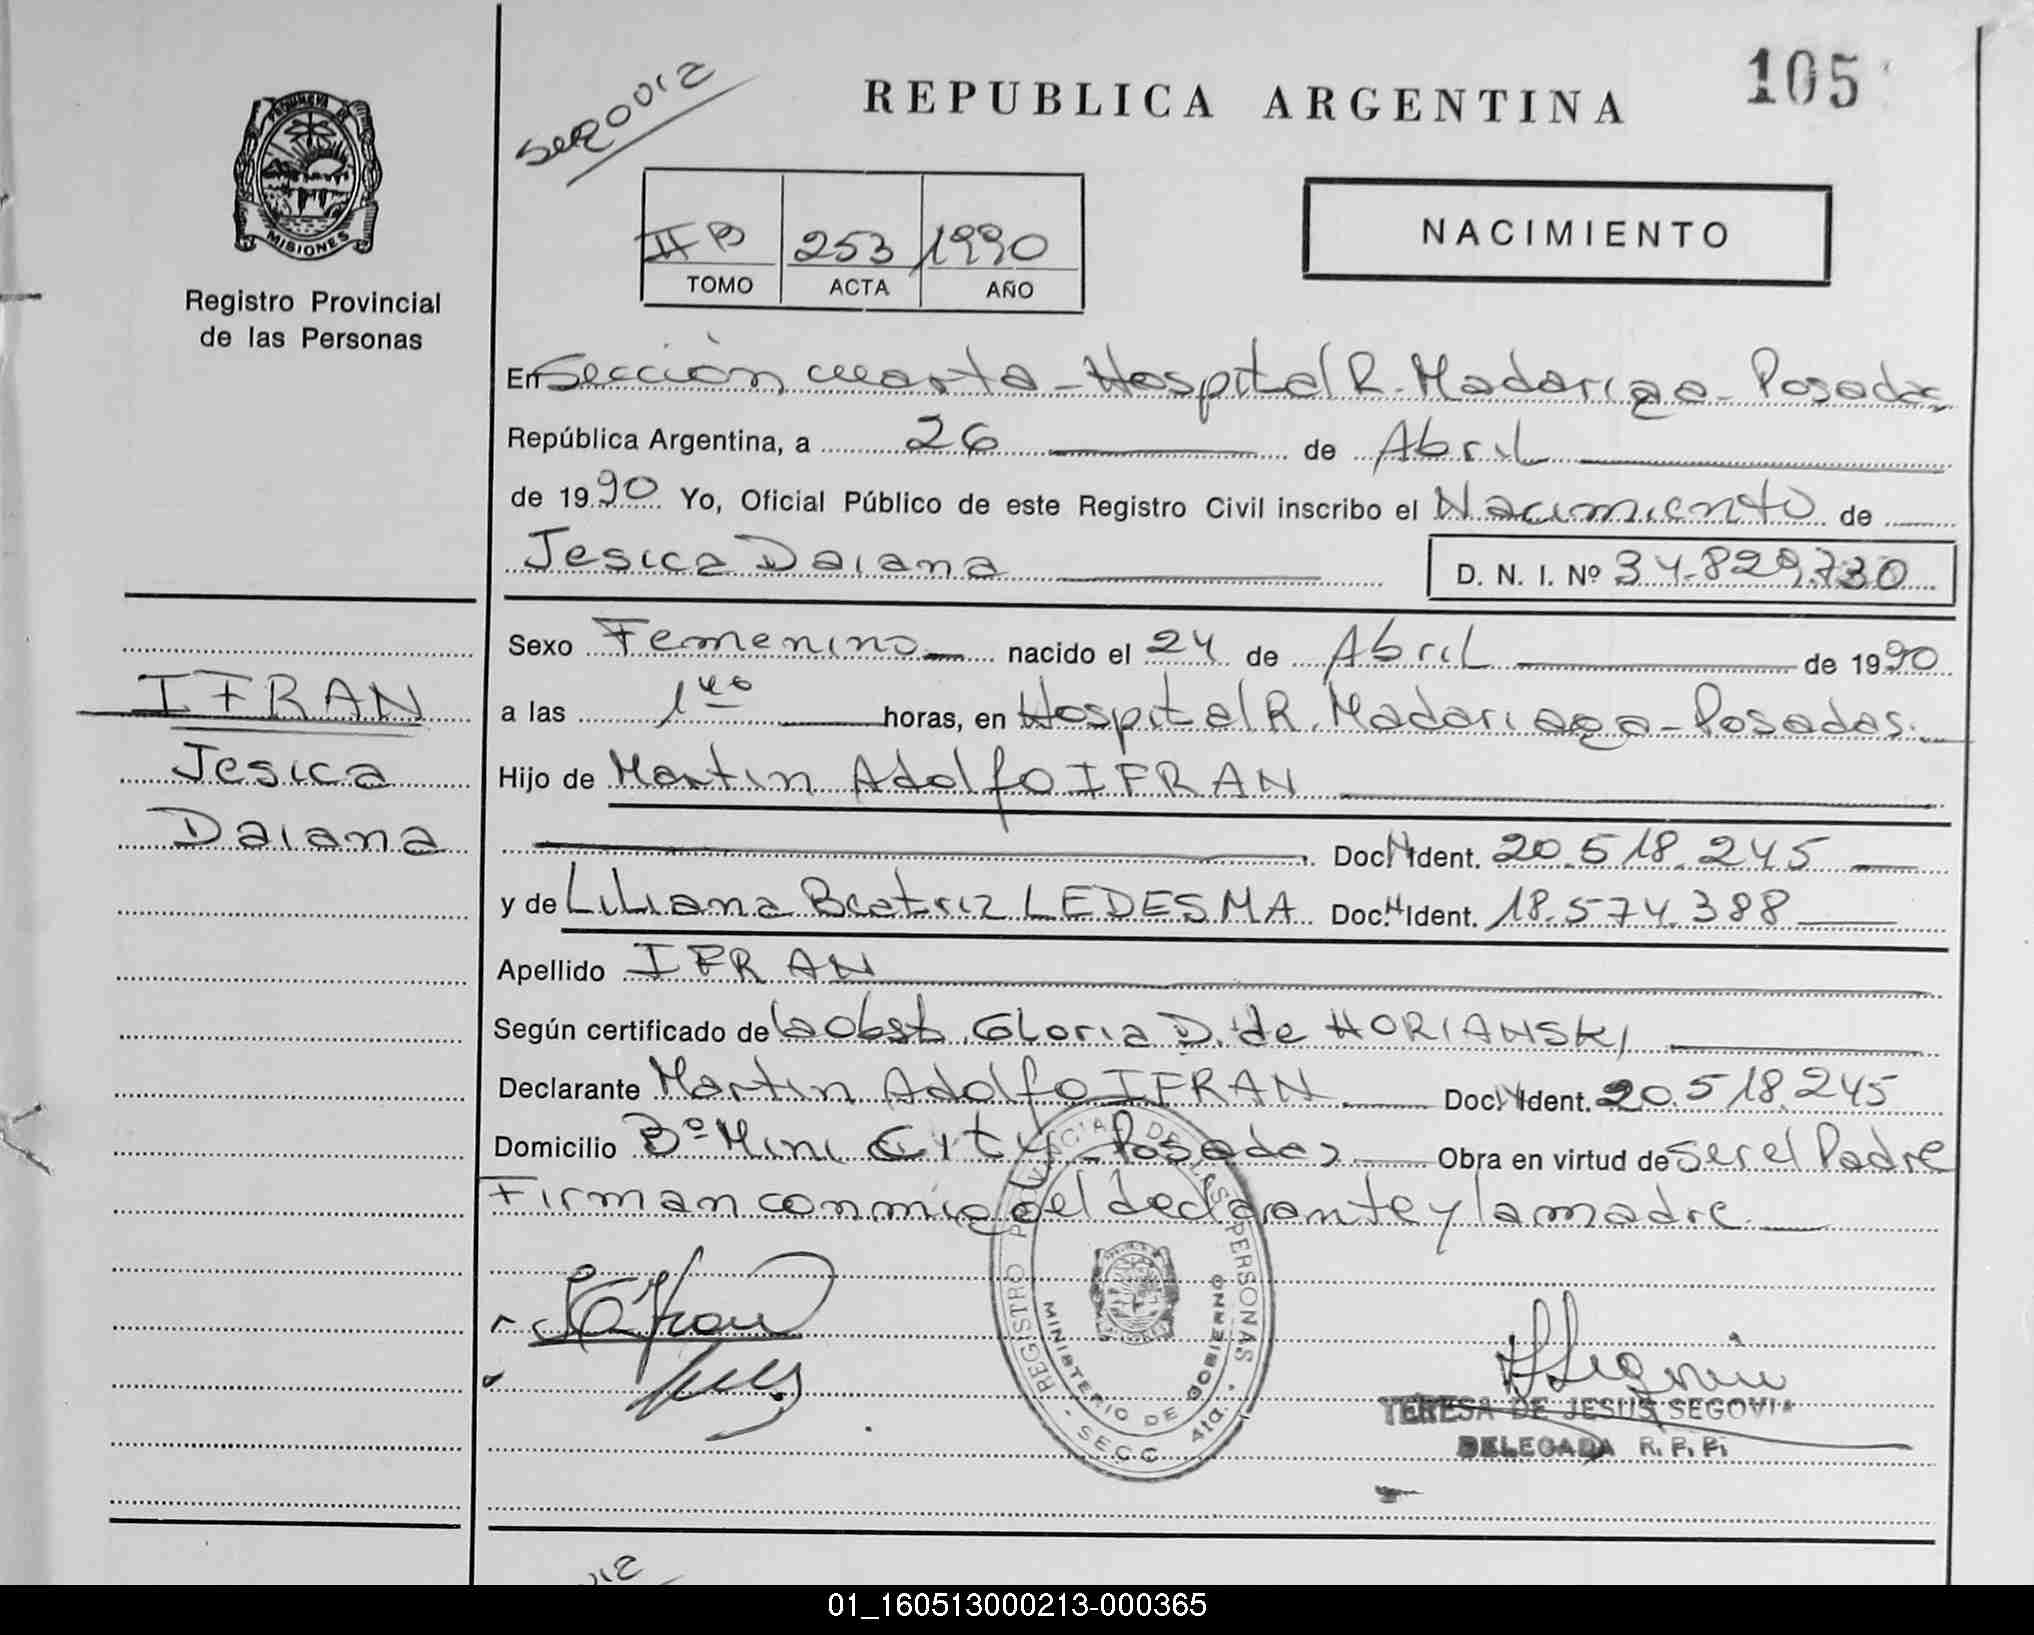 105
REPUBLICA ARGENTINA
NACIMIENTO
MISIONES
Registro Provincial
de las Personas
II B 253 1990
TOMO ACTA AÑO
En Sección cuarta - Hospital R. Madariaga - Posadas
República Argentina, a 26 de Abril
de 1990 Yo, Oficial Público de este Registro Civil inscribo el Nacimiento de
Jesica Daiana D. N. I. Nº 34.829.730
IFRAN
Jesica
Daiana
Sexo Femenino nacido el 24 de Abril de 1990
a las 1 40 horas, en Hospital R. Madariaga - Posadas.
Hijo de Martin Adolfo IFRAN
Doc. N Ident. 20.518.245
y de Liliana Beatriz LEDESMA Doc. N Ident. 18.574.388
Apellido IFRAN
Según certificado de la Obst. Gloria D. de HORIANSKI
Declarante Martin Adolfo IFRAN Doc. N Ident. 20.518.245
Domicilio Bº Mini City - Posadas Obra en virtud de ser el Padre
Firman conmigo el declarante y la madre
REGISTRO PROVINCIAL DE LAS PERSONAS
MINISTERIO DE GOBIERNO
- SECC. 4ta. -
TERESA DE JESUS SEGOVIA
DELEGADA R. P. P.
01_160513000213-000365